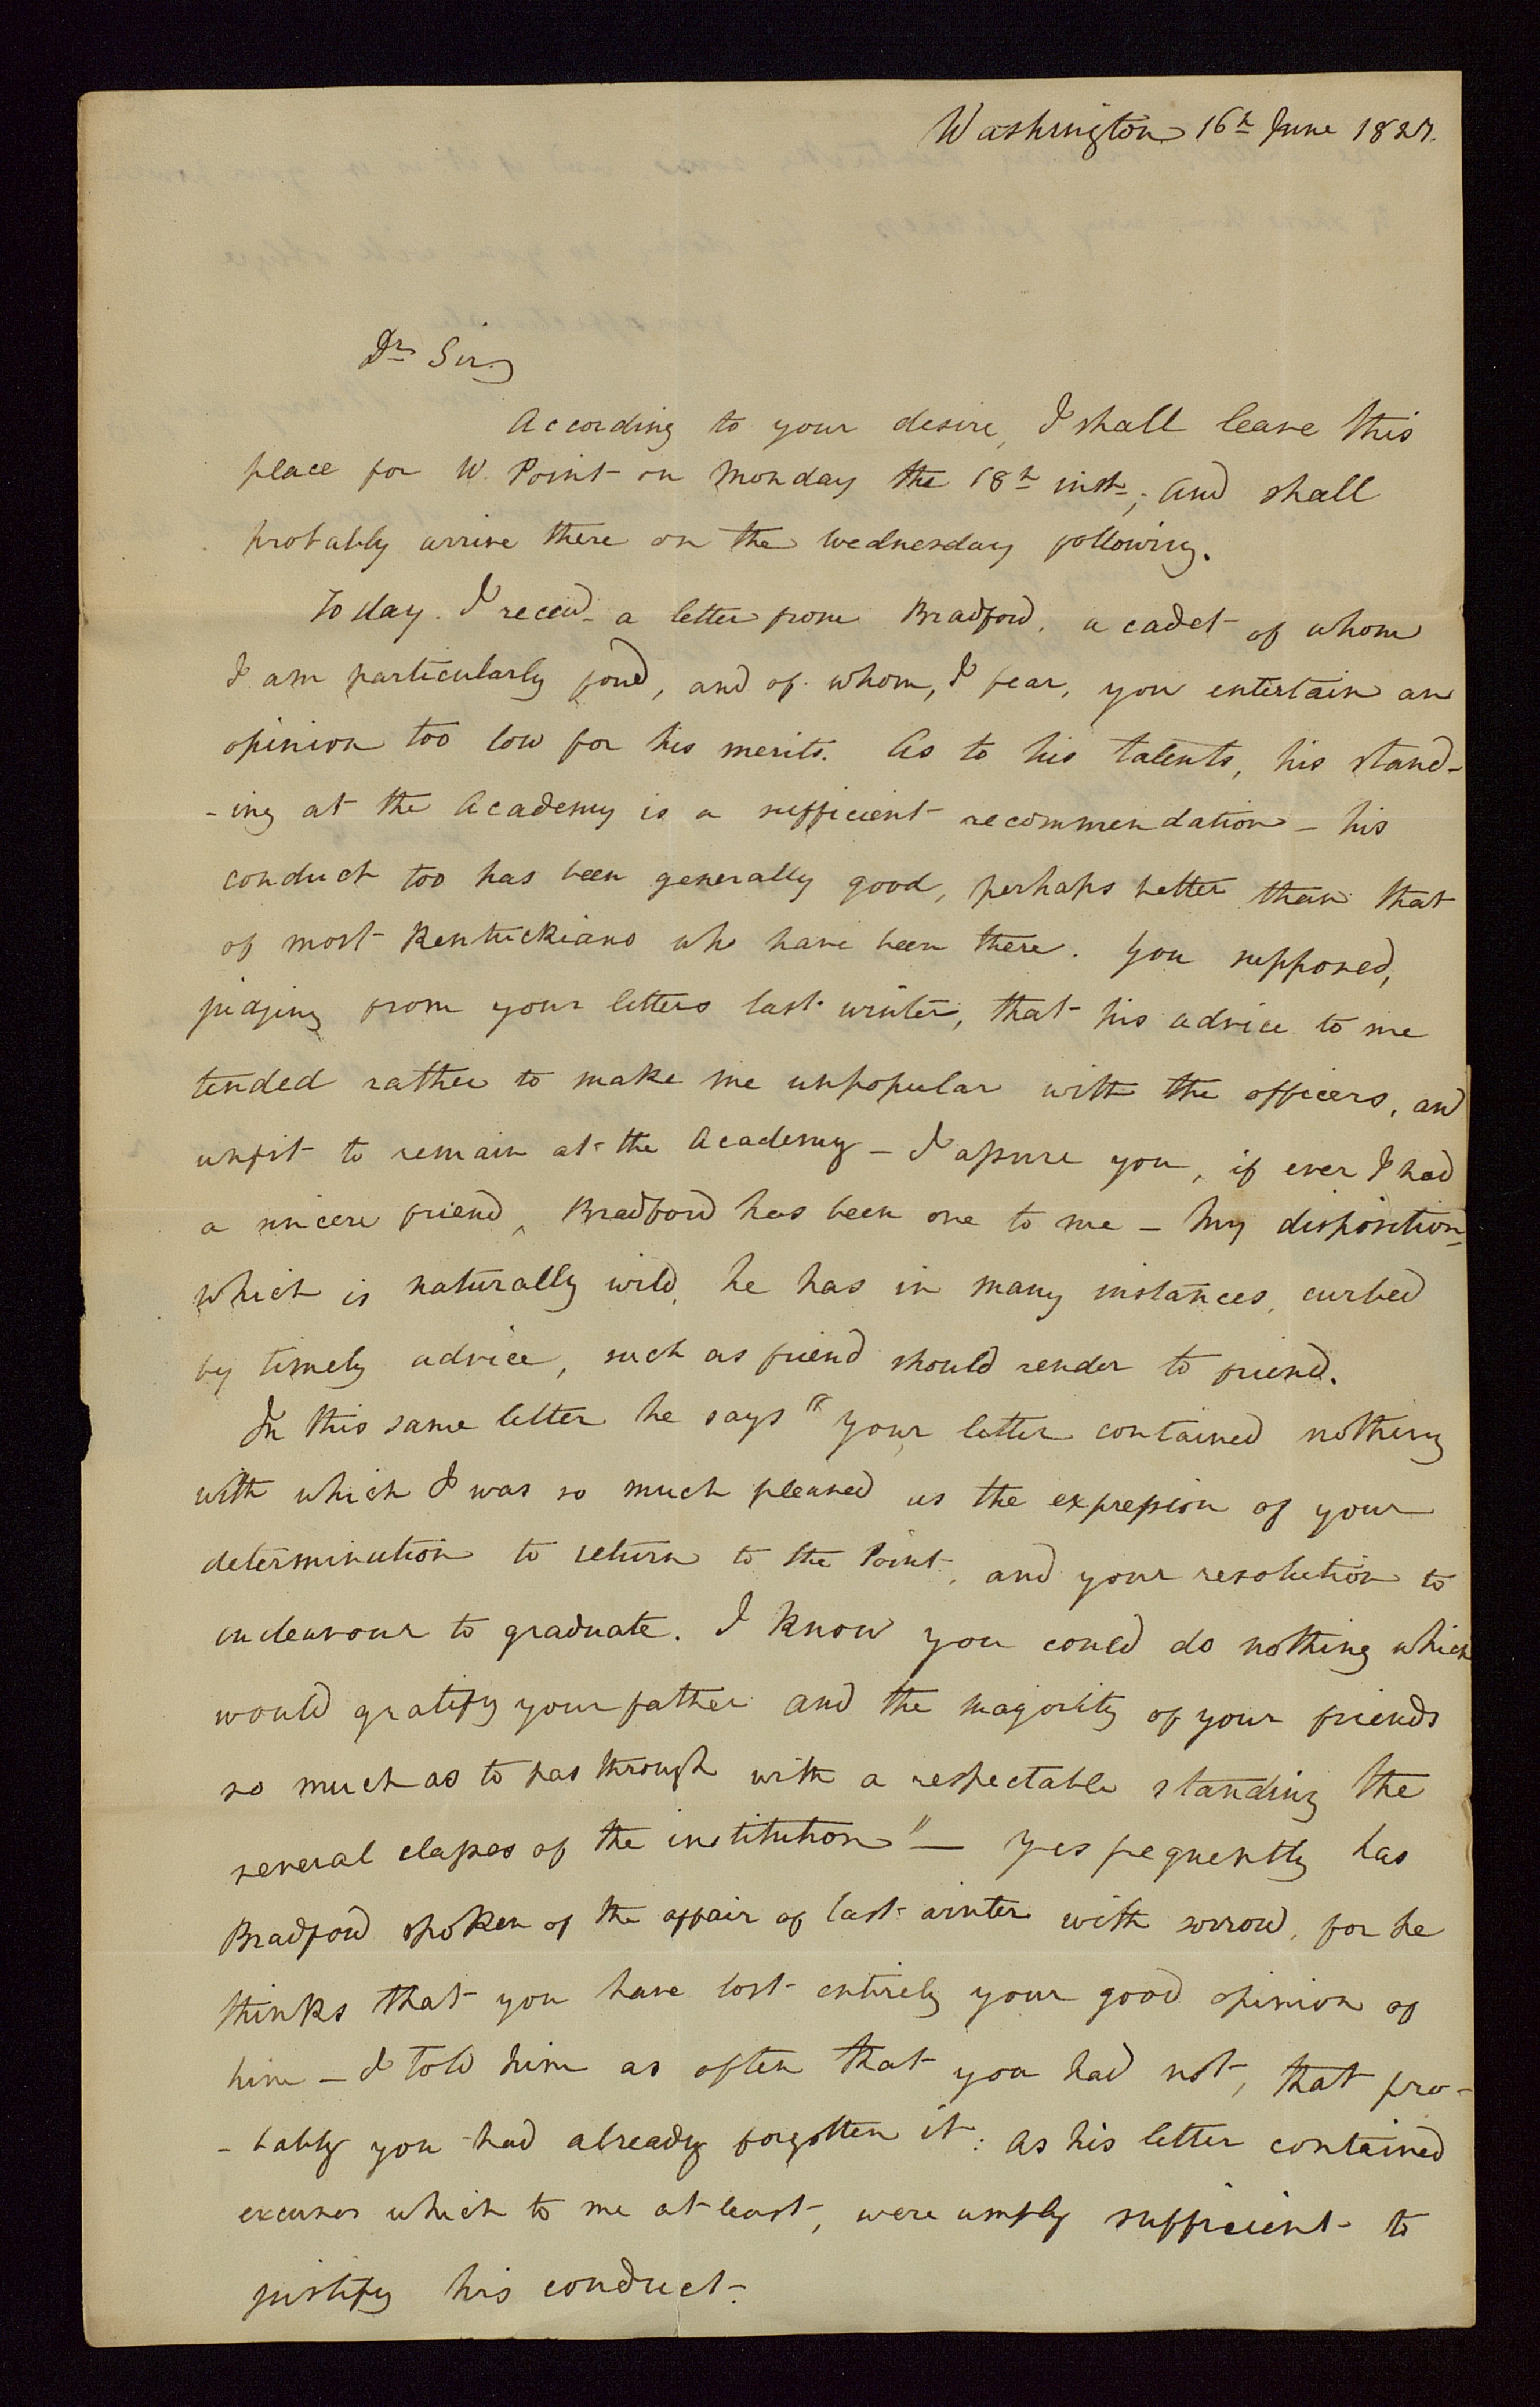 Washington 16th June 1827.
Dr Sir,
According to your desire, I shall leave this
place for W. Point on Monday the 18th inst; and shall
probably arrive there on the Wednesday following.
To day. I receivd a letter from Bradford, a cadet of whom
I am particularly fond, and of whom, I fear, you entertain an
opinion too low for his merits. As to his talents, his stand-
-ing at the Academy is a sufficient recommendation – his
conduct too has been generally good, perhaps better than that
of most Kentuckians who have been there. You supposed,
judging from your letters last winter, that his advice to me
tended rather to make me unpopular with the officers, and
unfit to remain at the Academy – I assure you, if ever I had
a sincere friend, Bradford has been one to me – My disposition,
which is naturally wild, he has in many instances, curbed
by timely advice, such as friend should render to friend.
In this same letter he says "your letter contained nothing
with which I was so much pleased as the expression of your
determination to return to the Point, and your resolution to
endeavour to graduate. I know you could do nothing which
would gratify your father and the majority of your friends
so much as to pas through with a respectable standing the
several classes of the institution" – Yes frequently has
Bradford spoken of the affair of last winter with sorrow, for he
thinks that you have lost entirely your good opinion of
him – I told him as often that you had not, that pro-
-bably you had already forgotten it: As his letter contained
excuses which to me at least, were amply sufficient to
justify his conduct.